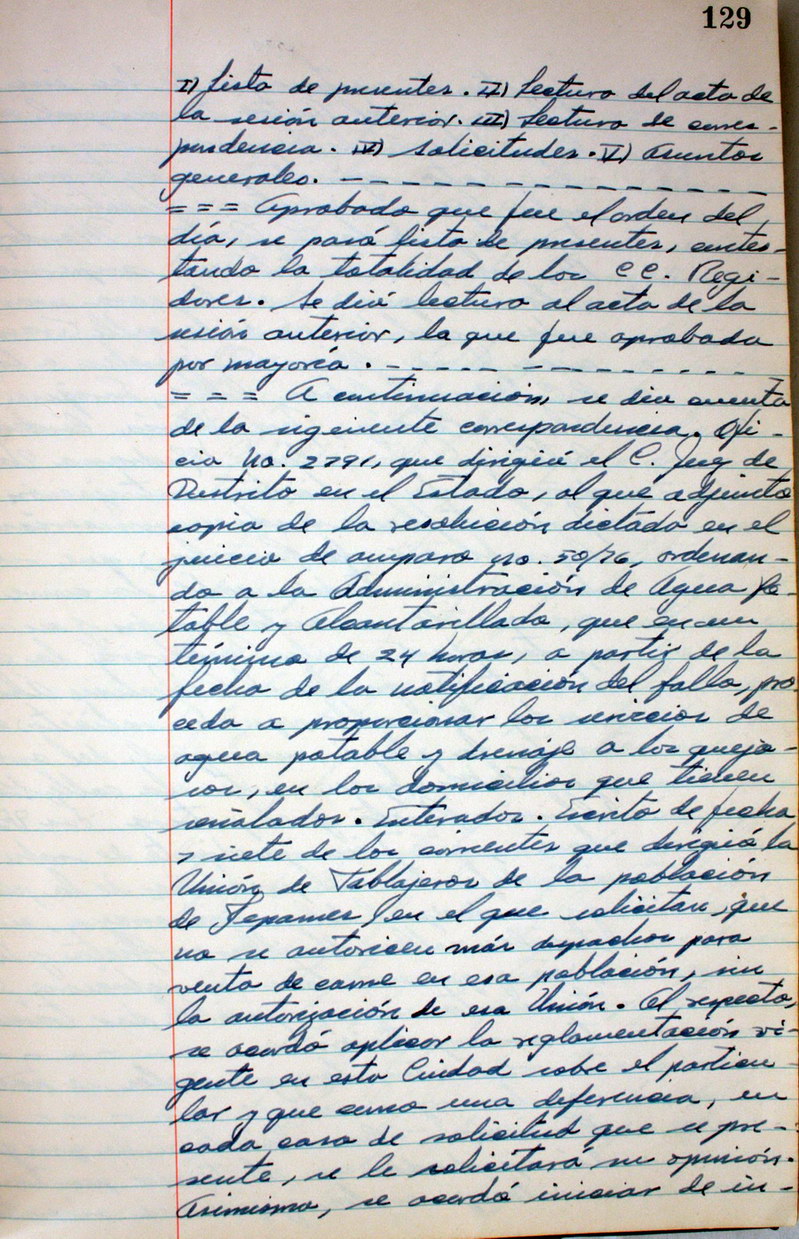 129
I) Lista de presentes. II) Lectura del acta de
la sesión anterior. III) Lectura de corres-
pondencia. IV) Solicitudes. V) Asuntos
generales. - - - - - - - - - - - - - - - - -
= = = Aprobado que fue el orden del
día, se pasó lista de presentes, contes-
tando la totalidad de los CC. Regi-
dores. Se dió lectura al acta de la
sesión anterior, la que fue aprobada
por mayoría. - - - - - - - - - - - - - -
= = = A continuación, se dio cuenta
de la sigeiente correspondencia. Ofi-
cio No. 2791, que dirigió el C. Juez de
Distrito en el Estado, al que adjunta
copia de la resolución dictada en el
juicio de amparo no. 50/76, ordenan-
do a la Administración de Agua Po-
table y Alcantarillado, que en un
término de 24 horas, a partir de la
fecha de la notificación del fallo, pro-
ceda a proporcionar los servicios de
agua potable y drenaje a los quejo-
sos, en los domicilios que tienen
señalados. Enterados. Escrito de fecha
7 siete de los corrientes que dirigió la
Unión de Tablajeros de la población
de Tepames, en el que solicitan que
no se autoricen más expachos para
venta de carne en esa población, sin
la autorización de esa Unión. Al respecto,
se acordó aplicar la reglamentación vi-
gente en esta Ciudad sobre el particu-
lar y que como una deferencia, en
cada caso de solicitud que se pre-
sente, se le solicitará su opinión.
Asimismo, se acordó iniciar de in-